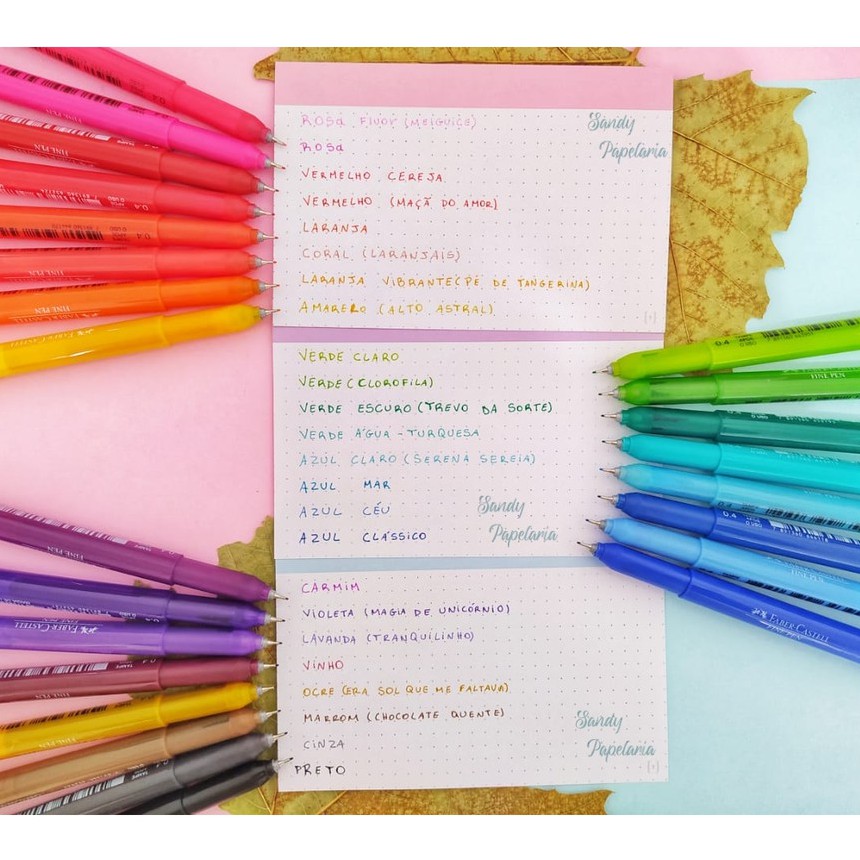 ROSA FLUOR (MEIGUICE)
Sandy
Papelaria
ROSA
VERMELHO CEREJA
VERMELHO (MAÇÃ DO AMOR)
LARANJA
CORAL (LARANJAIS)
LARANJA VIBRANTE (PÉ DE TANGERINA)
AMARELO (ALTO ASTRAL)
VERDE CLARO
VERDE (CLOROFILA)
VERDE ESCURO (TREVO DA SORTE)
VERDE ÁGUA - TURQUESA
AZUL CLARO (SERENA SEREIA)
AZUL MAR
AZUL CÉU
Sandy
Papelaria
AZUL CLÁSSICO
CARMIM
VIOLETA (MAGIA DE UNICÓRNIO)
LAVANDA (TRANQUILINHO)
VINHO
OCRE (ERA SOL QUE ME FALTAVA)
MARROM (CHOCOLATE QUENTE)
Sandy
Papelaria
CINZA
PRETO
FINE PEN
FINE PEN
FINE PEN
FABER-CASTELL
0.4
FINE PEN
0.4
FABER-CASTELL
FINE PEN
FABER-CASTELL
FINE PEN